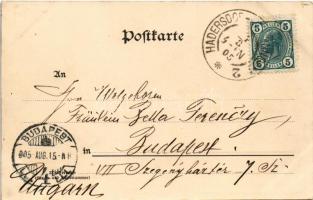 Postkarte
HADERSDORF
5
5
An
Fräulein Bella Ferenczy
in Budapest
VII Szegényház tér 7. Sz.
Ungarn
BUDAPEST
905 AUG. 15